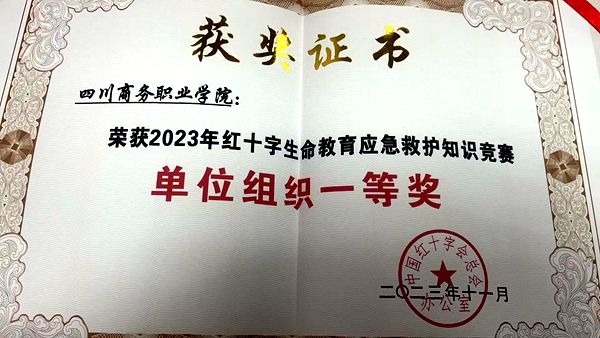 获奖证书
四川商务职业学院：
荣获2023年红十字生命教育应急救护知识竞赛
单位组织一等奖
中国红十字会总会
办公室
二〇二三年十一月